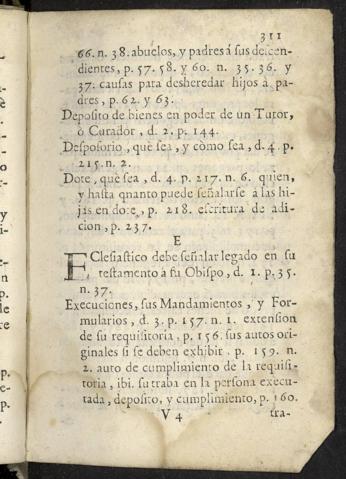 311
66. n. 38. abuelos, y padres á sus descen-
dientes, p. 57. 58. y 60. n. 35. 36. y
37: causas para desheredar hijos á pa-
dres, p. 62. y 63.
Deposito de bienes en poder de un Tutor,
ò Curador, d. 2. p. 144.
Desposorio, què sea, y còmo sea, d. 4. p.
215. n. 2.
Dote, què sea, d. 4. p. 217. n. 6. quien,
y hasta qnanto puede señalarse á las hi-
jas en dote, p. 218. escritura de adi-
cion, p. 237.
E
EClesiastico debe señalar legado en su
testamento à su Obispo, d. 1. p. 35.
n. 37.
Execuciones, sus Mandamientos, y For-
mularios, d. 3. p. 157. n. 1. extension
de su requisitoria, p. 156. sus autos ori-
ginales si se deben exhibir. p. 159. n.
2. auto de cumplimiento de la requisi-
toria, ibi. su traba en la persona execu-
tada, deposito, y cumplimiento, p. 160.
V 4 tra-